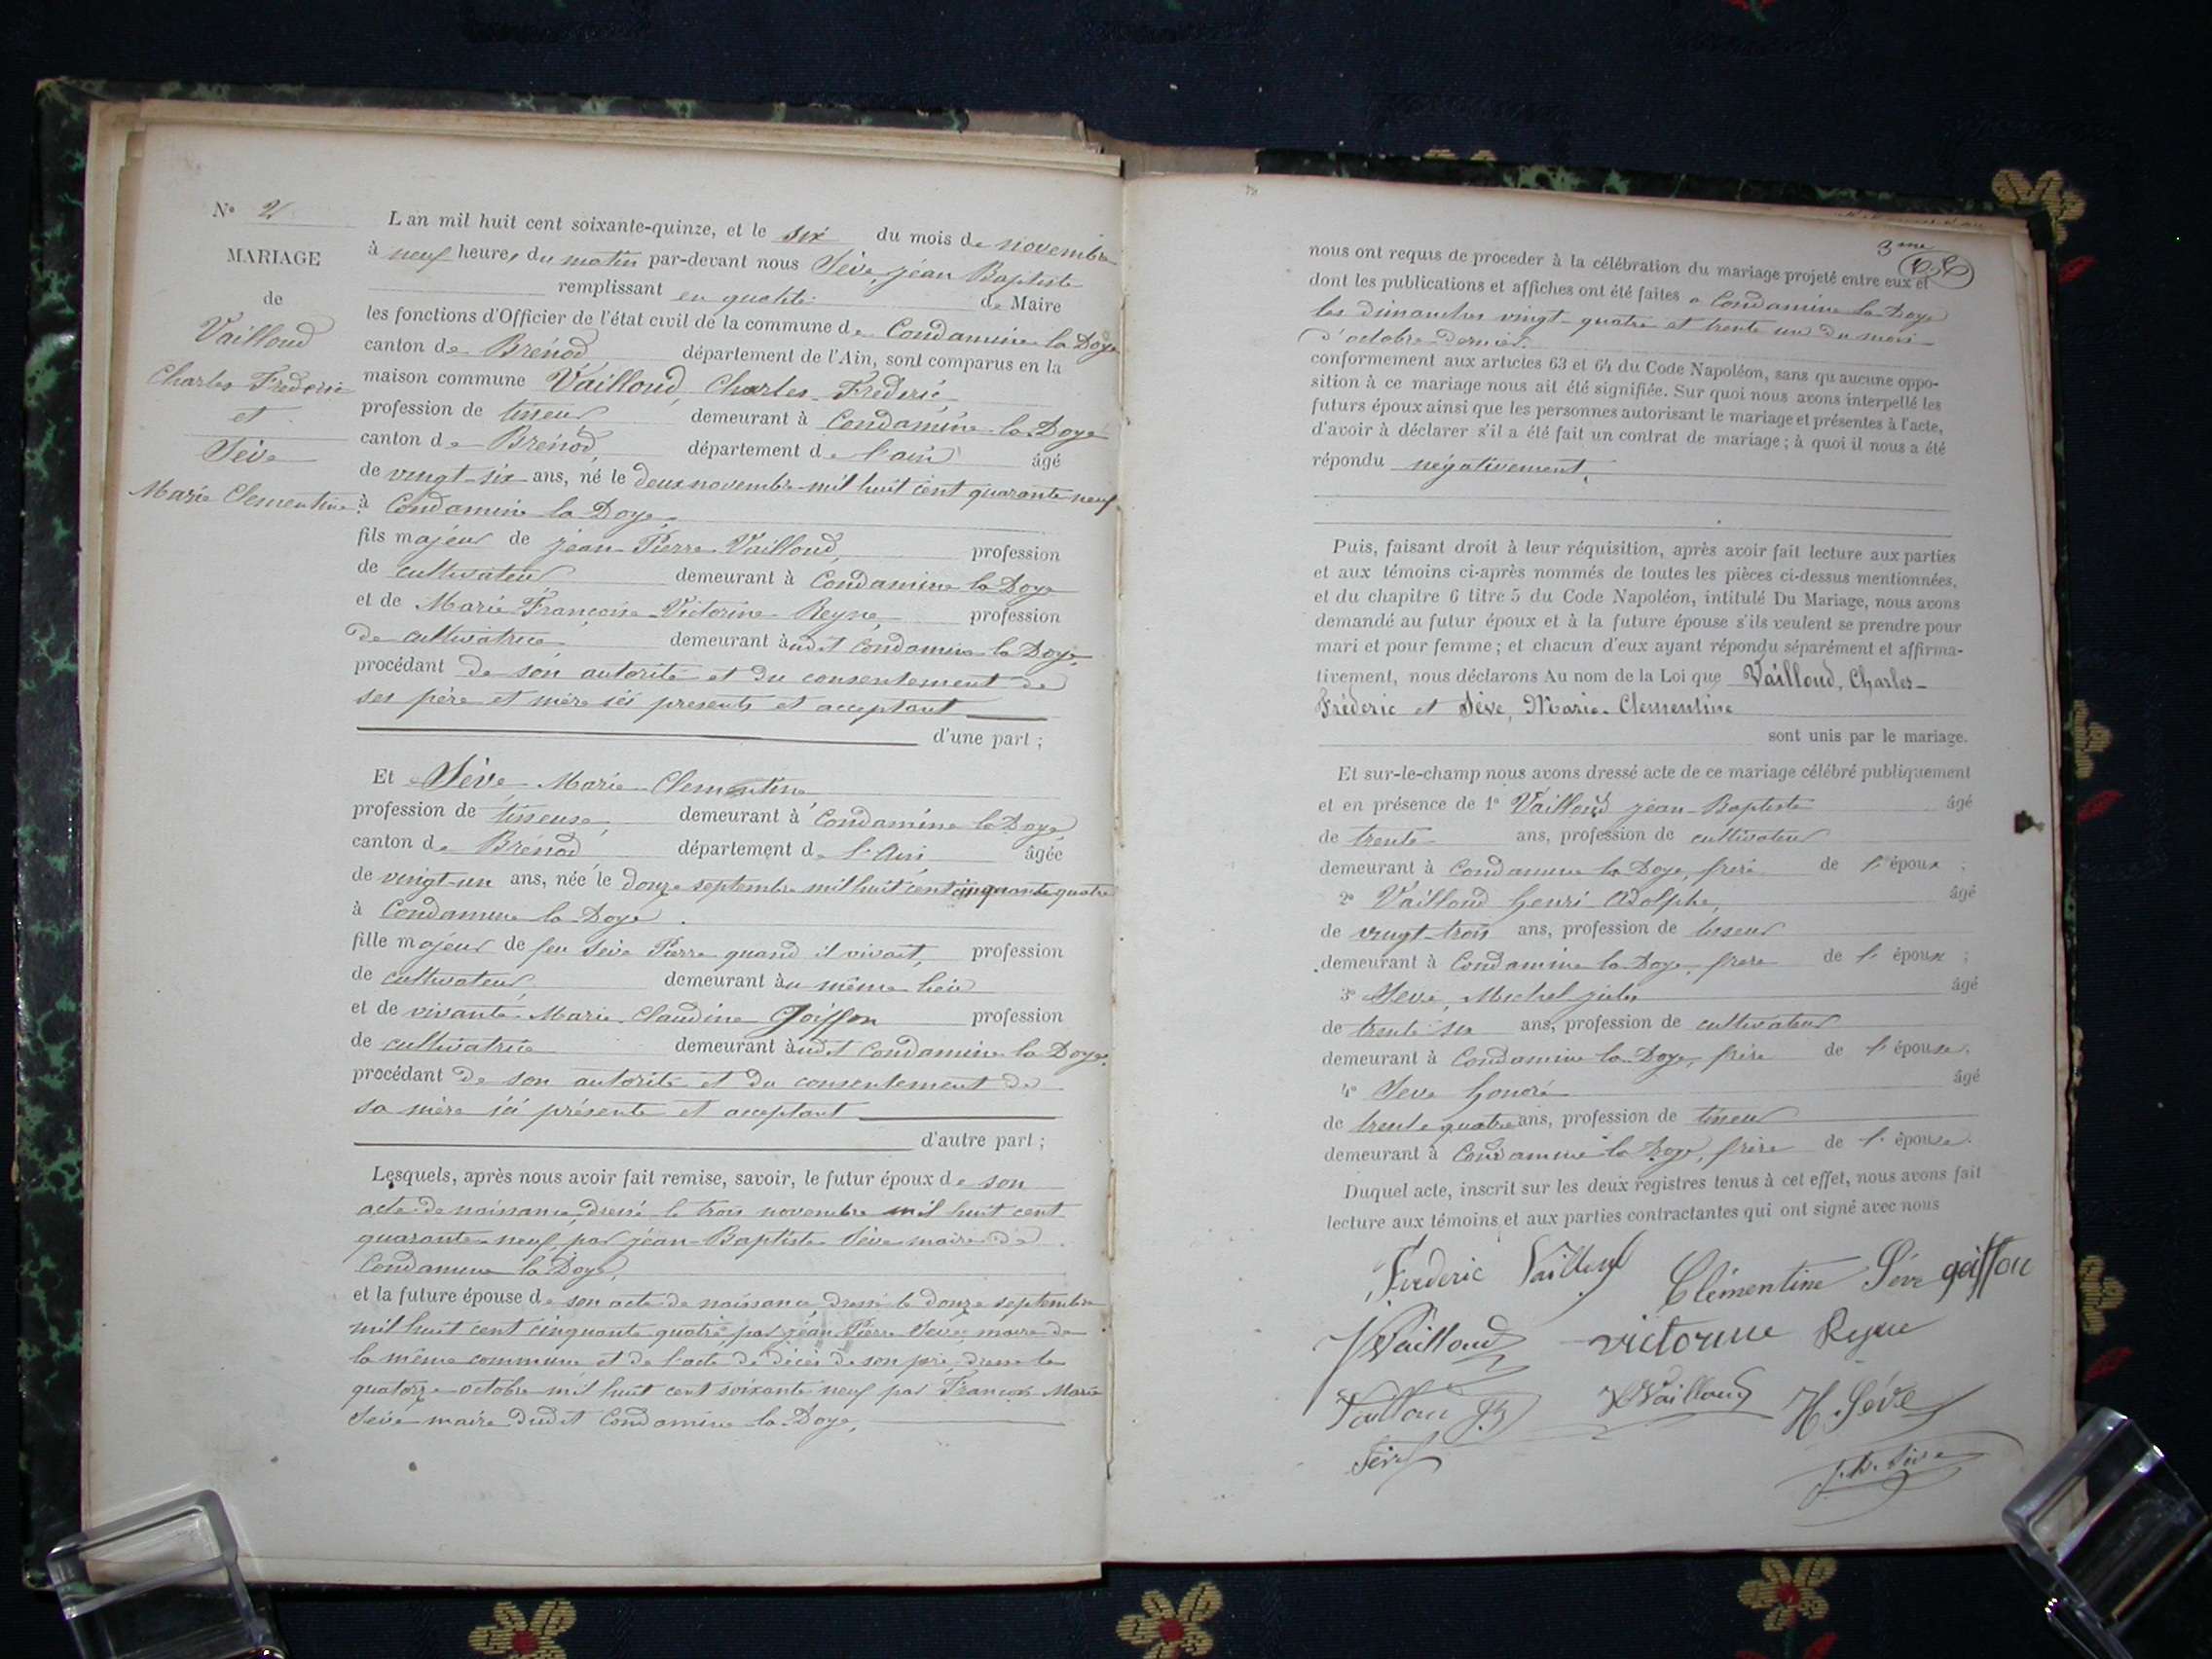 N° 2
MARIAGE
de
Vailloud
Charles Frédéric
et
Sève
Marie Clementine
L'an mil huit cent soixante-quinze, et le six du mois de novembre
à neuf heures du matin par-devant nous Sève, jean Baptiste
remplissant en qualité de Maire
les fonctions d'Officier de l'état civil de la commune de Condamine la Doye
canton de Brénod département de l'Ain, sont comparus en la
maison commune Vailloud, Charles Frédéric
profession de tisseur demeurant à Condamine la Doye
canton de Brénod, département de l'ain âgé
de vingt-six ans, né le deux novembre mil huit cent quarante neuf
à Condamine la Doye,
fils majeur de jean Pierre Vailloud, profession
de cultivateur demeurant à Condamine la Doye
et de Marie Françoise Victorine Reyne, profession
de cultivatrice demeurant àudit Condamine la Doye,
procédant de son autorité et du consentement de
ses père et mère ici presents et acceptant
d'une part ;
Et Sève Marie Clementine
profession de tisseuse, demeurant à Condamine la Doye
canton de Brénod département de l'Ain âgée
de vingt-un ans, née le douze septembre mil huit cent cinquante quatre
à Condamine la Doye.
fille majeur de feu Sève Pierre quand il vivait, profession
de cultivateur demeurant àu même lieu
et de vivante Marie Claudine Goiffon profession
de cultivatrice demeurant àudit Condamine la Doye.
procédant de son autorité et du consentement de
sa mère ici présente et acceptant
d'autre part ;
Lesquels, après nous avoir fait remise, savoir, le futur époux de son
acte de naissance, dressé le trois novembre mil huit cent
quarante-neuf, par jean-Baptiste Sève maire de
Condamine la Doye,
et la future épouse de son acte de naissance, dressé le douze septembre
mil huit cent cinquante quatre, par jean Pierre Sève maire de
la même commune et de l'acte de décès de son père, dressé le
quatorze octobre mil huit cent soixante neuf par François Marie
Sève maire dudit Condamine la Doye,
3me
nous ont requis de proceder à la célébration du mariage projeté entre eux et
dont les publications et affiches ont été faites a Condamine la Doye
les dimanches vingt-quatre et trente un du mois
d'octobre dernier.
conformement aux articles 63 et 64 du Code Napoléon, sans qu'aucune oppo-
sition à ce mariage nous ait été signifiée. Sur quoi nous avons interpellé les
futurs époux ainsi que les personnes autorisant le mariage et présentes à l'acte,
d'avoir à déclarer s'il a été fait un contrat de mariage ; à quoi il nous a été
répondu négativement,
Puis, faisant droit à leur réquisition, après avoir fait lecture aux parties
et aux témoins ci-après nommés de toutes les pièces ci-dessus mentionnées,
et du chapitre 6 titre 5 du Code Napoléon, intitulé Du Mariage, nous avons
demandé au futur époux et à la future épouse s'ils veulent se prendre pour
mari et pour femme ; et chacun d'eux ayant répondu séparément et affirma-
tivement, nous déclarons Au nom de la Loi que Vailloud, Charles-
Fréderic et Sève, Marie-Clementine
sont unis par le mariage.
Et sur-le-champ nous avons dressé acte de ce mariage célébré publiquement
et en présence de 1° Vailloud jean-Baptiste âgé
de trente ans, profession de cultivateur
demeurant à Condamine la Doye, frère de l'époux ;
2° Vailloud henri Adolphe, âgé
de vingt-trois ans, profession de tisseur
demeurant à Condamine la Doye, frère de l'époux ;
3° Sève, Michel jules âgé
de trente six ans, profession de cultivateur
demeurant à Condamine la Doye, frère de l'épouse,
4° Seve honoré âgé
de trente quatre ans, profession de tisseur
demeurant à Condamine la Doye, frère de l'épouse.
Duquel acte, inscrit sur les deux registres tenus à cet effet, nous avons fait
lecture aux témoins et aux parties contractantes qui ont signé avec nous
Frederic Vailloud Clémentine Sève goiffon
Vailloud victorine Reyne
Vailloud JB HVailloud H. Sève
Sève
J. B. Sève